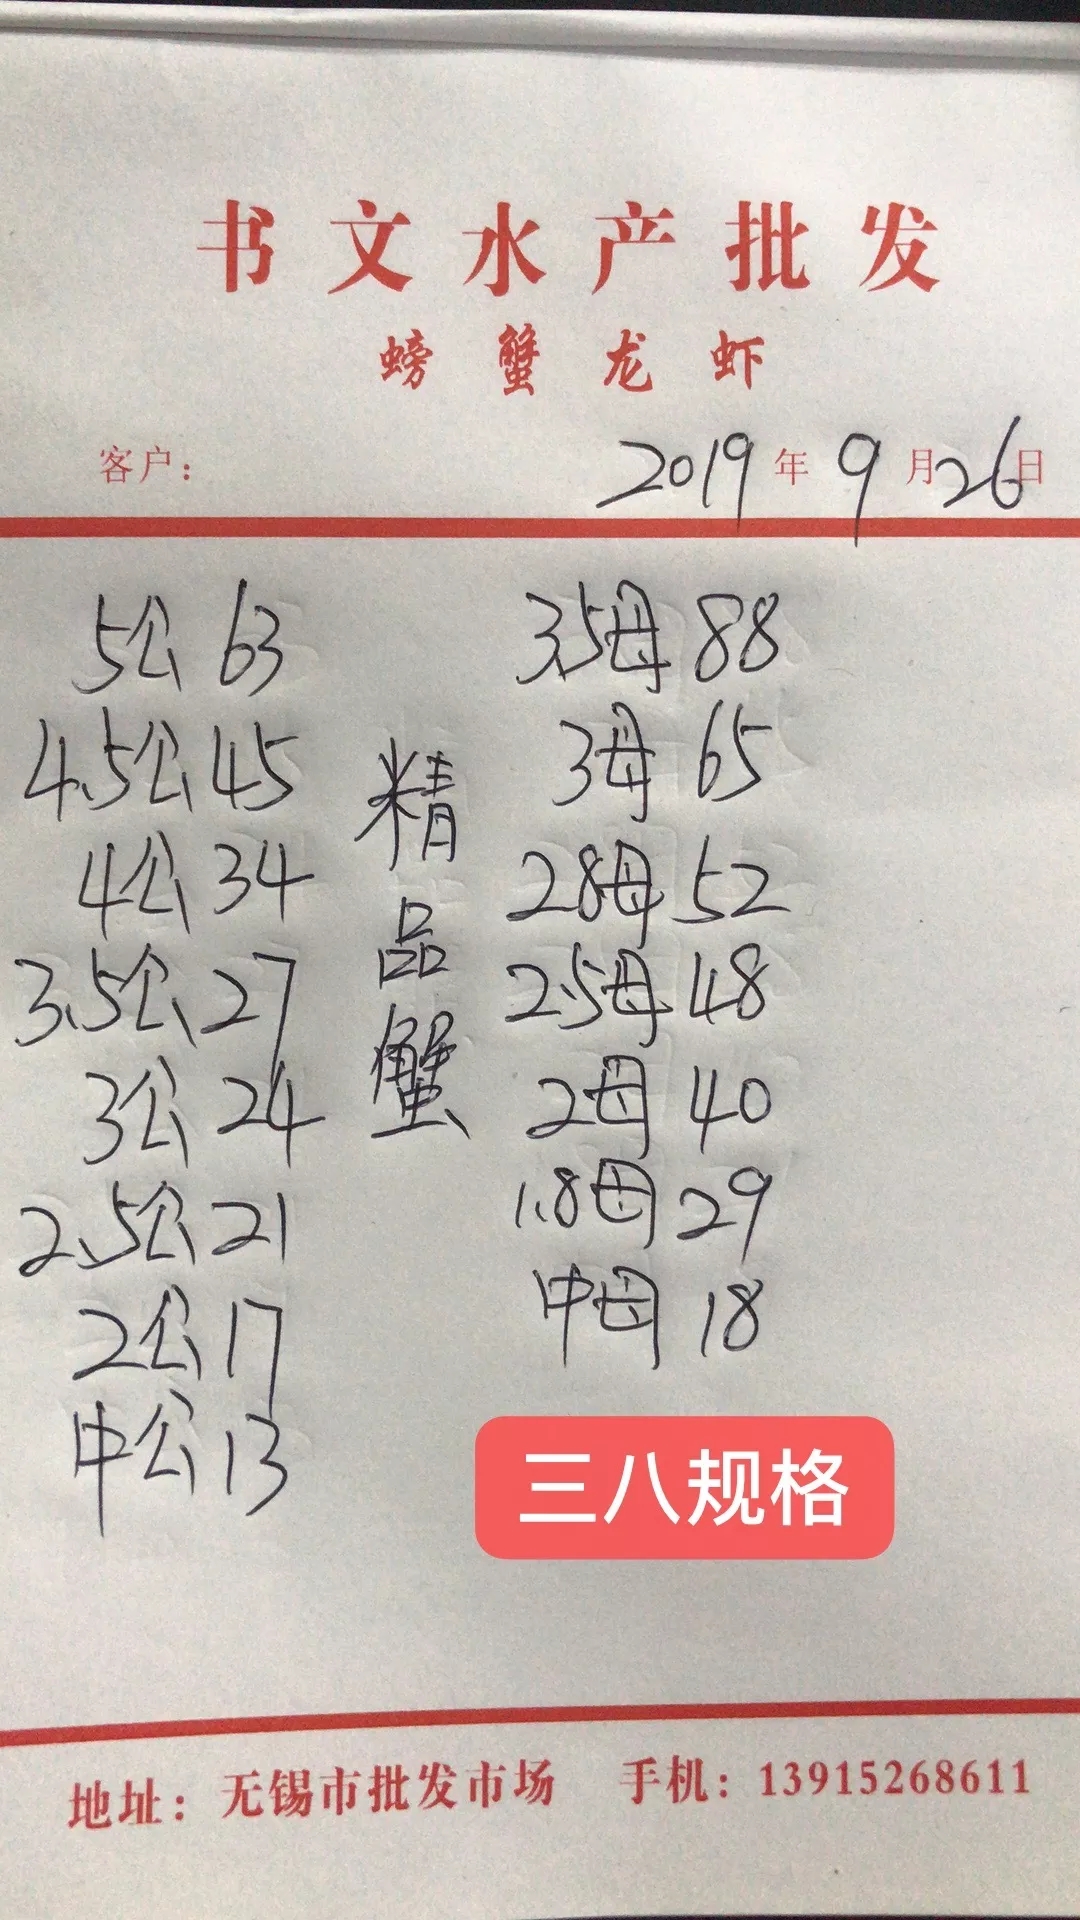 书文水产批发
螃蟹龙虾
客户：
2019年9月26日
5公 63
4.5公 45
4公 34
3.5公 27
3公 24
2.5公 21
2公 17
中公 13
精品蟹
3.5母 88
3母 65
28母 52
2.5母 48
2母 40
1.8母 29
中母 18
三八规格
地址：无锡市批发市场 手机：13915268611